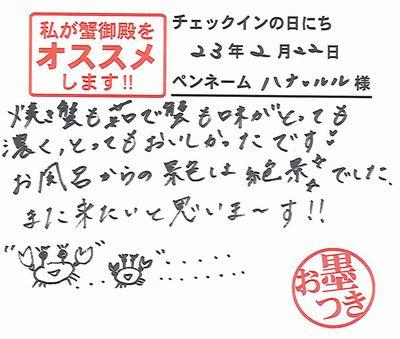 私が蟹御殿を
オススメ
します!!
チェックインの日にち
23年2月22日
ペンネーム ハナ・ルル 様
焼き蟹も茹で蟹も味がとっても
濃く、とってもおいしかったです♥
お風呂からの景色は絶景でした。
また来たいと思いま〜す!!
お墨つき